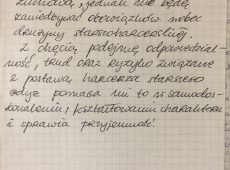 zuchowa, jednak nie będę
zaniedbywać obowiązków wobec
drużyny starszoharcerskiej.
Z chęcią podejmę odpowiedzial-
ność, trud oraz ryzyko związane
z postawą harcerza starszego
gdyż pomaga mi to w samodos-
konaleniu, kształtowaniu charakteru
i sprawia przyjemność!